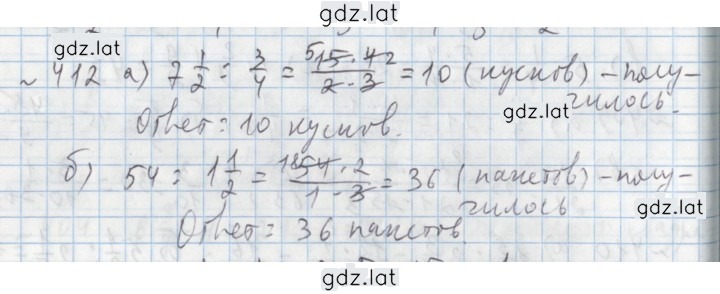 gdz.lat
gdz.lat
~ 412 а) 7 1/2 : 3/4 = 5 15 · 4 2 / 2 · 3 = 10 (кусков) – полу-
чилось.
gdz.lat
Ответ: 10 кусков.
б) 54 : 1 1/2 = 18 54 · 2 / 1 · 3 = 36 (пакетов) – полу-
чилось
gdz.lat
gdz.lat
Ответ: 36 пакетов.
gdz.lat